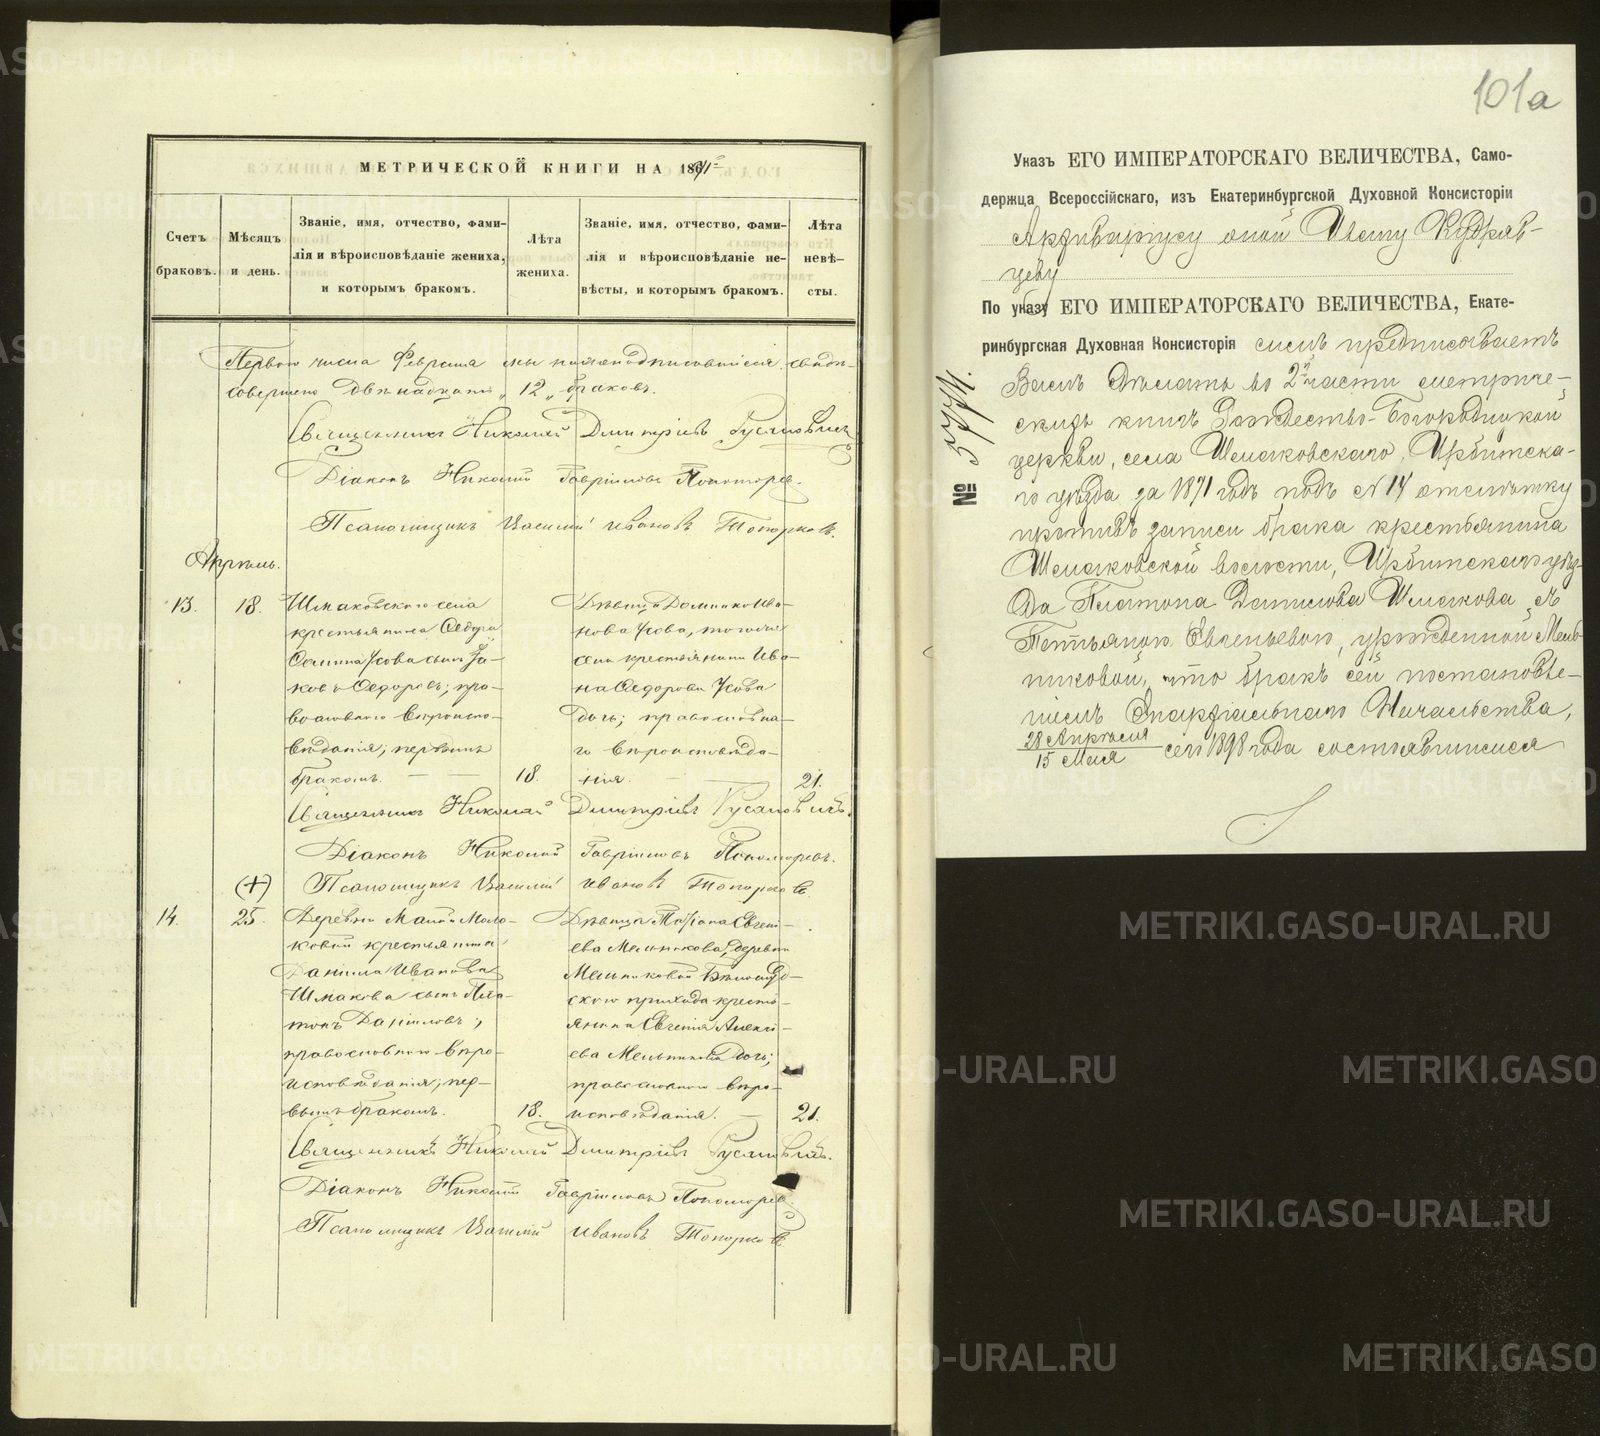 МЕТРИЧЕСКОЙ КНИГИ НА 1871й
Счетъ браковъ.
Мѣсяцъ и день.
Званіе, имя, отчество, фами-
лія и вѣроисповѣданіе жениха,
и которымъ бракомъ.
Лѣта жениха.
Званіе, имя, отчество, фами-
лія и вѣроисповѣданіе не-
вѣсты, и которымъ бракомъ.
Лѣта невѣ-
сты.
Перваго числа Февраля мы нижеподписавшіеся
совершено двѣнадцать „12„ браковъ.
Священникъ Николай Димитріевъ
Діаконъ Николай Гавріиловъ Пономаревъ.
Псаломщикъ Василій Ивановъ Топорковъ.
Апрѣль.
13.
18.
Шмаковскаго села
крестьянина Ѳедора
Усова сынъ Іа-
ковъ Ѳедоровъ; пра-
вославнаго вѣроиспо-
вѣданія; первымъ
бракомъ.
18.
Дѣвица Домника Ива-
нова Усова, тогоже
села крестьянина Ива-
на Ѳедорова Усова
дочь; православна-
го вѣроисповѣда-
нія.
21.
Священникъ Николай Димитріевъ
Діаконъ Николай Гавріиловъ Пономаревъ.
(+)
Псаломщикъ Василій Ивановъ Топорковъ
14.
25.
Деревни Малой
крестьянина
Даніила Иванова
Шмакова сынъ Пла-
тонъ Даніиловъ;
православнаго вѣро-
исповѣданія; пер-
вымъ бракомъ.
18.
Дѣвица Татіана Евгені-
ева Мельникова, деревни
Мельниковой
скаго прихода кресть-
янина Евгенія Алексі-
ева Мельникова дочь;
православнаго вѣро-
исповѣданія.
21.
Священникъ Николай Димитріевъ
Діаконъ Николай Гавріиловъ Пономаревъ
Псаломщикъ Василій Ивановъ Топорковъ
101а
Указъ ЕГО ИМПЕРАТОРСКАГО ВЕЛИЧЕСТВА, Само-
держца Всероссійскаго, изъ Екатеринбургской Духовной Консисторіи
Архиваріусу оной Ивану Кудряв-
цеву
По указу ЕГО ИМПЕРАТОРСКАГО ВЕЛИЧЕСТВА, Екате-
ринбургская Духовная Консисторія симъ предписываетъ
№ 5774.
Вамъ сдѣлать во 2й части метриче-
скихъ книгъ Рождество-Богородицкой
церкви, села Шмаковскаго, Ирбитска-
го уѣзда за 1871 годъ подъ № 14 отмѣтку
противъ записи брака крестьянина
Шмаковской волости, Ирбитскаго уѣз-
да Платона Данилова Шмакова съ
Татьяной Евгеньевой, урожденной Мель-
никовой, что бракъ сей постановле-
ніемъ Епархіальнаго Начальства,
28 Апрѣля
15 Мая
сего 1898 года состоявшимся
METRIKI.GASO-URAL.RU